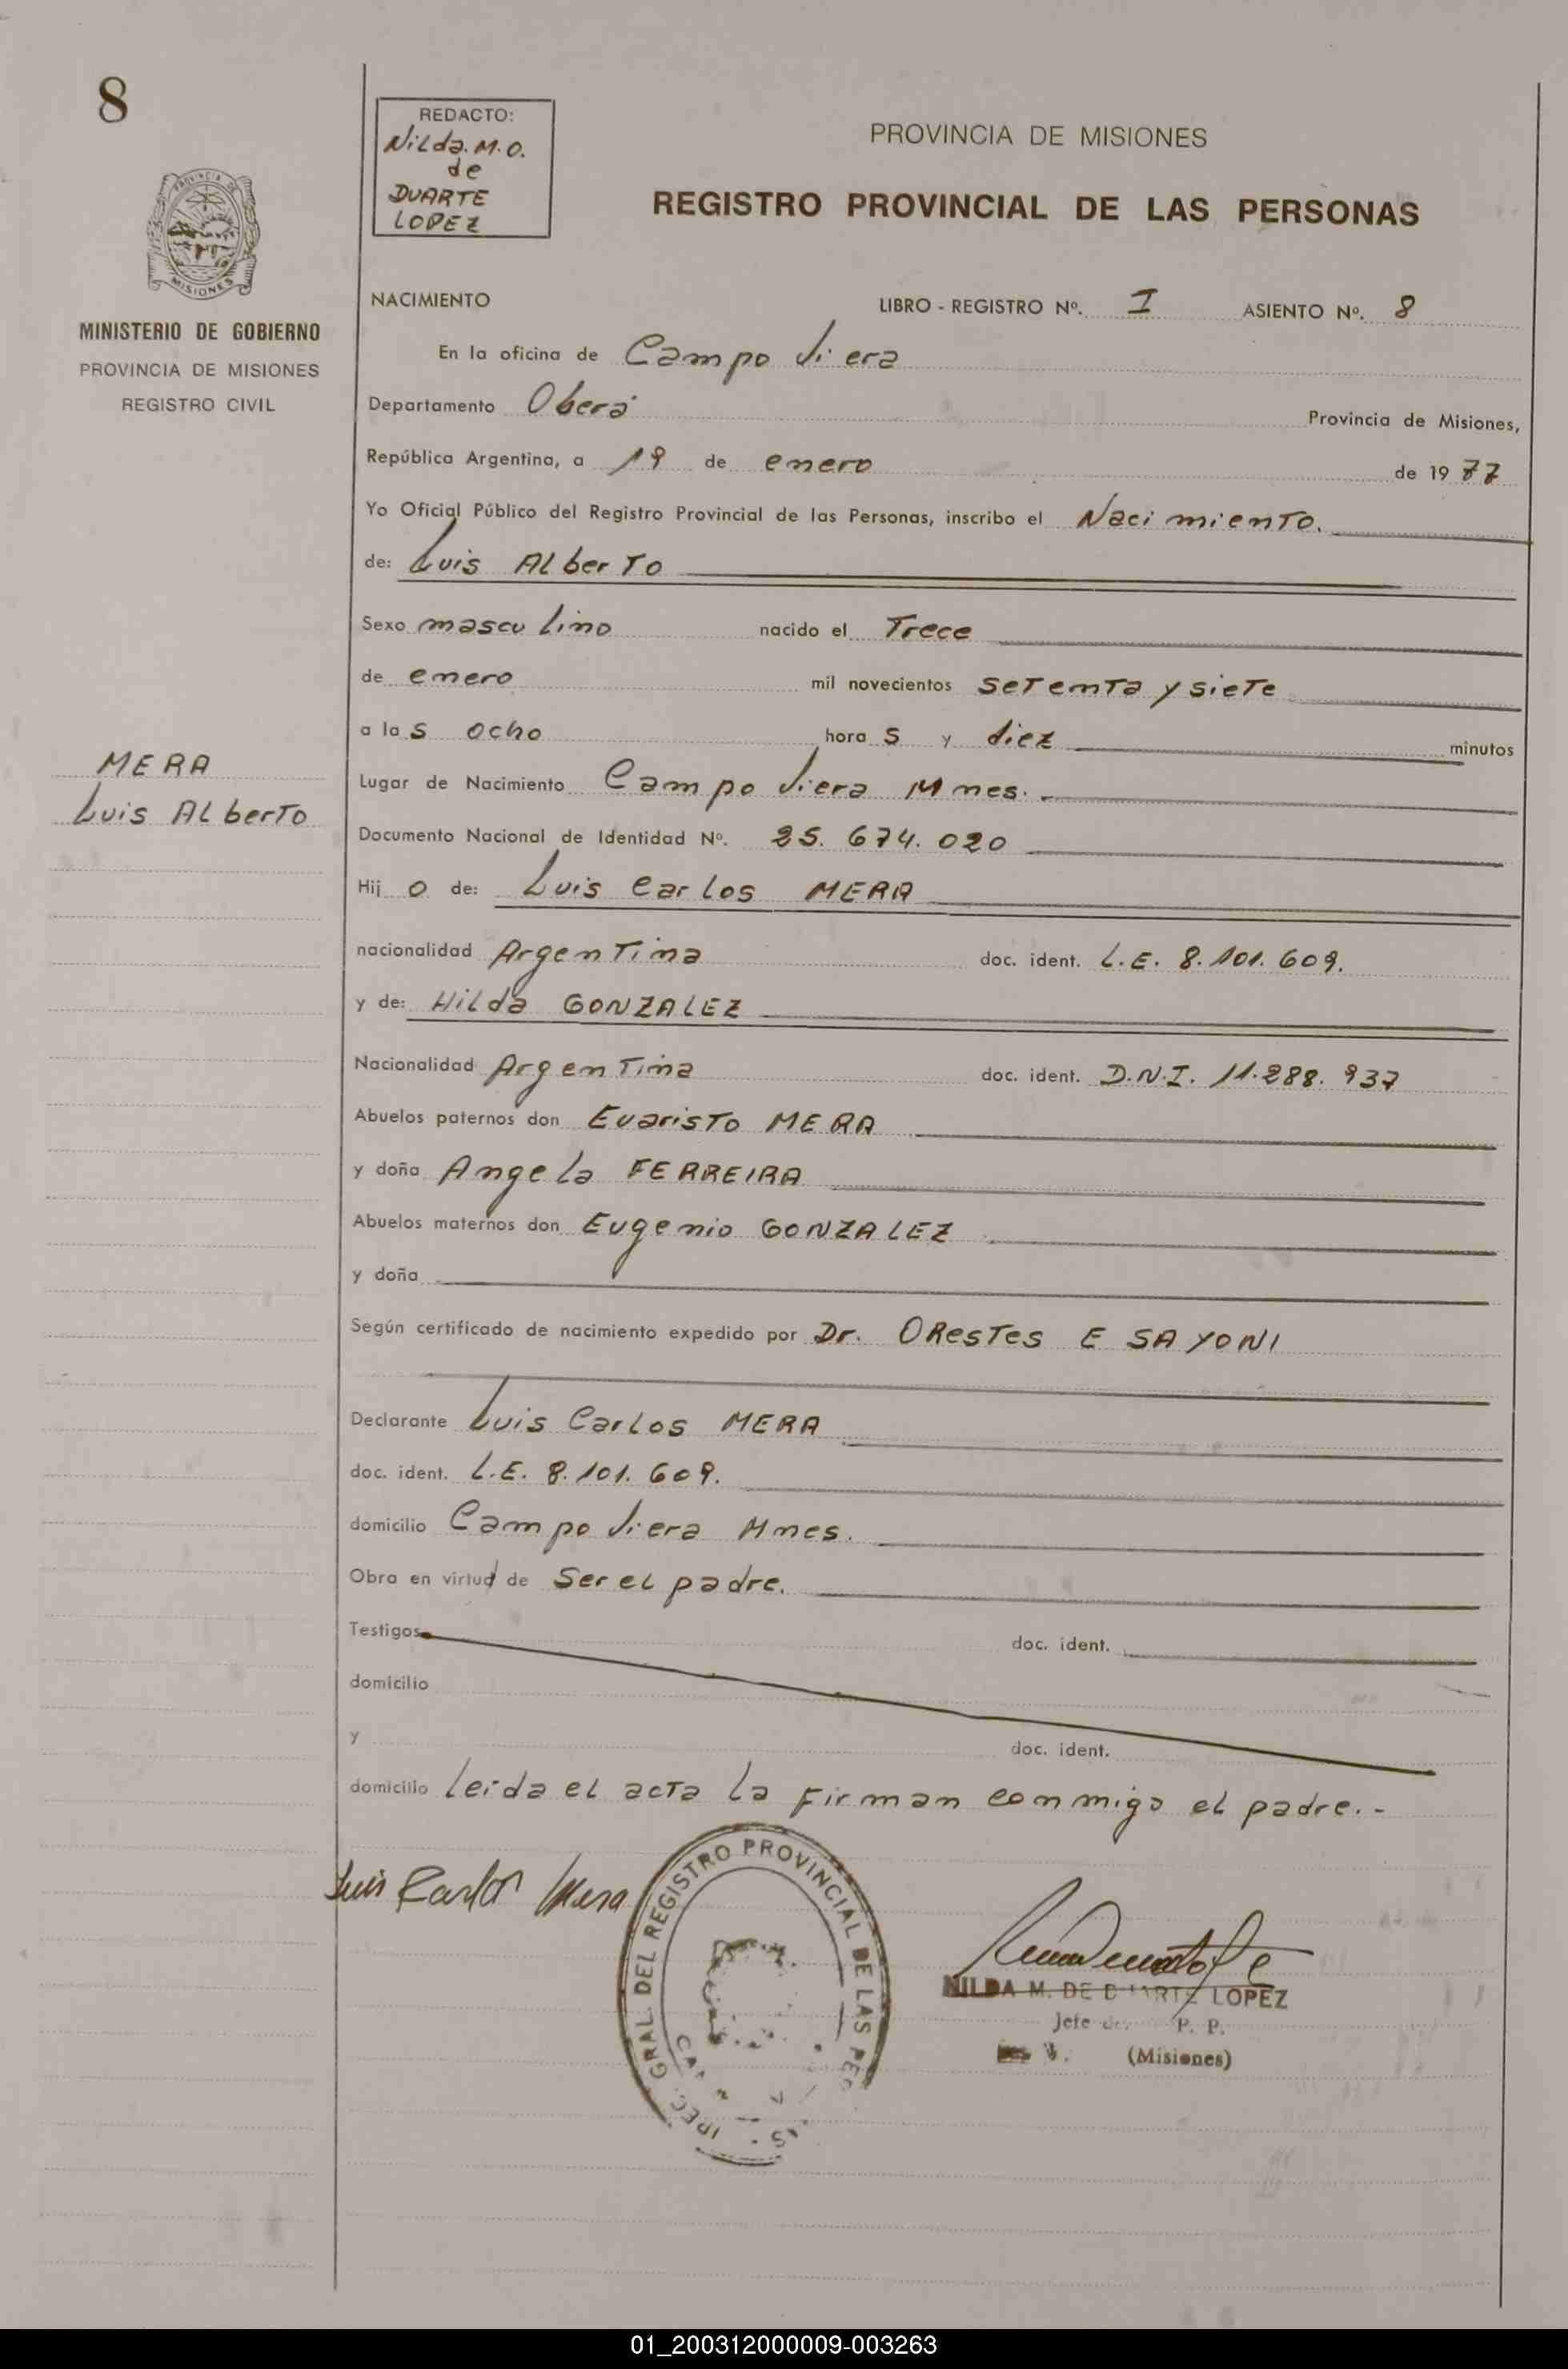 8
REDACTO:
Nilda. M. O.
de
DUARTE
LOPEZ
PROVINCIA DE MISIONES
REGISTRO PROVINCIAL DE LAS PERSONAS
PROVINCIA DE
MISIONES
MINISTERIO DE GOBIERNO
PROVINCIA DE MISIONES
REGISTRO CIVIL
NACIMIENTO LIBRO - REGISTRO Nº. I ASIENTO Nº. 8
En la oficina de Campo Viera
Departamento Oberá Provincia de Misiones,
República Argentina, a 19 de enero de 1977
Yo Oficial Público del Registro Provincial de las Personas, inscribo el Nacimiento.
de: Luis Alberto
Sexo masculino nacido el Trece
de enero mil novecientos setenta y siete
a las ocho horas y diez minutos
MERA
Luis Alberto
Lugar de Nacimiento Campo Viera Mnes.
Documento Nacional de Identidad Nº. 25.674.020
Hijo de: Luis Carlos MERA
nacionalidad Argentina doc. ident. L.E. 8.101.609.
y de: Hilda GONZALEZ
Nacionalidad Argentina doc. ident. D.N.I. 11.288.937
Abuelos paternos don Evaristo MERA
y doña Angela FERREIRA
Abuelos maternos don Eugenio GONZALEZ
y doña
Según certificado de nacimiento expedido por Dr. ORESTES E SAYONI
Declarante Luis Carlos MERA
doc. ident. L.E. 8.101.609.
domicilio Campo Viera Mnes.
Obra en virtud de Ser el padre.
Testigos doc. ident.
domicilio
y doc. ident.
domicilio leida el acta la firman conmigo el padre.-
Luis Carlos Mera
GRAL. DEL REGISTRO PROVINCIAL DE LAS
NILDA M. DE DUARTE LOPEZ
Jefe P. P.
(Misiones)
01_200312000009-003263